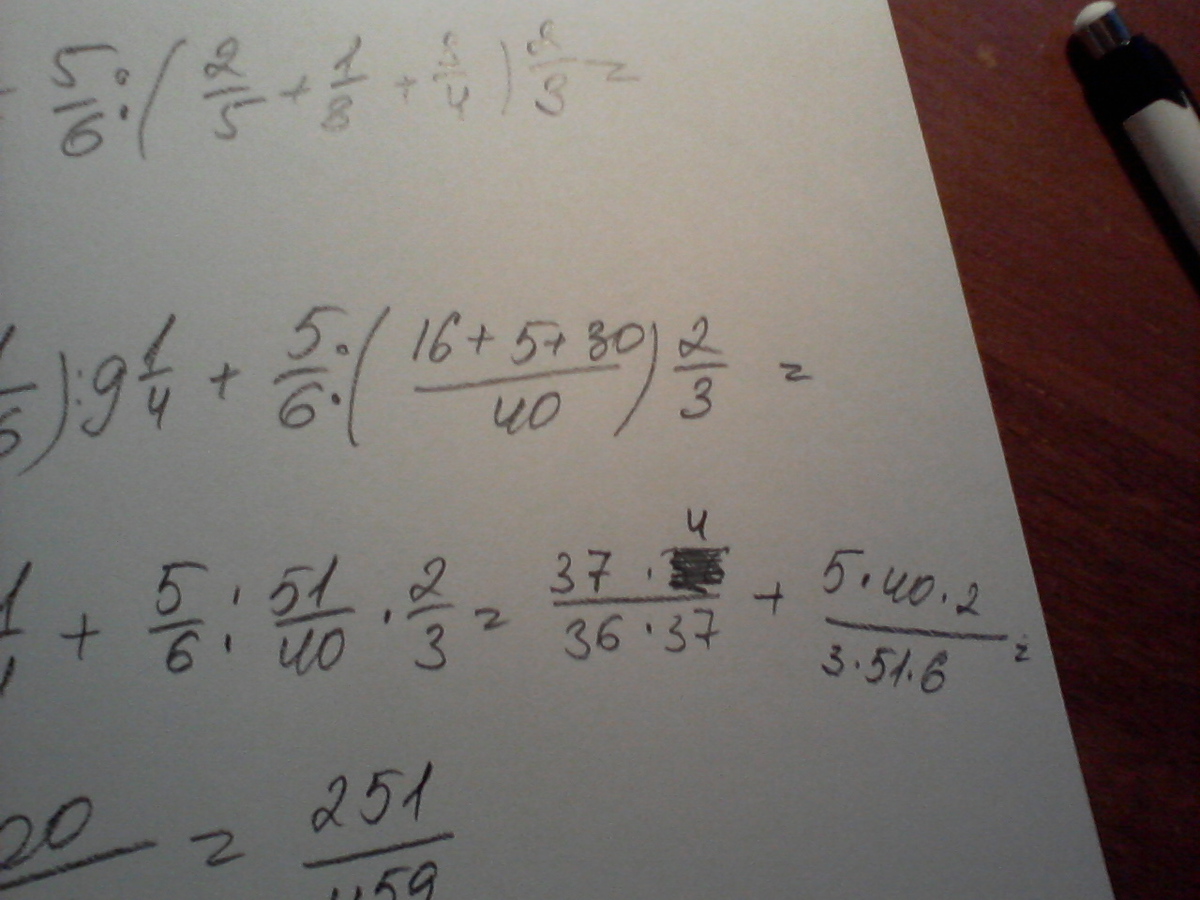 5/6 : (2/5 + 1/8 + 3/4) 2/3 =
1/6) : 9 1/4 + 5/6 : (16+5+30/40) 2/3 =
+ 5/6 : 51/40 · 2/3 = 37 · 4/36 · 37 + 5·40·2/3·51·6 =
= 251/459